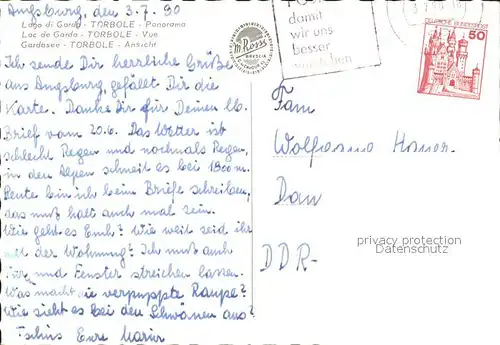 Augsburg, den 3.7.90
Lago di Garda - TORBOLE - Panorama
Lac de Garda - TORBOLE - Vue
Gardasee - TORBOLE - Ansicht
damit
wir uns
besser
50
Ich sende Dir herzliche Grüße
aus Augsburg, gefällt Dir die
Karte. Danke Dir für Deinen lb.
Brief vom 20.6. Das Wetter ist
schlecht Regen und nochmals Regen,
in den Alpen schneit es bei 1800 m.
Heute bin ich beim Briefe schreiben,
das muß halt auch mal sein.
Wie geht es Euch? Wie weit seid ihr
mit der Wohnung? Ich muß auch
und Fenster streichen lassen.
Was macht die verpuppte Raupe?
Wie sieht es bei den Schwänen aus?
Tschüs Eure
Fam
DDR-
privacy protection
Datenschutz